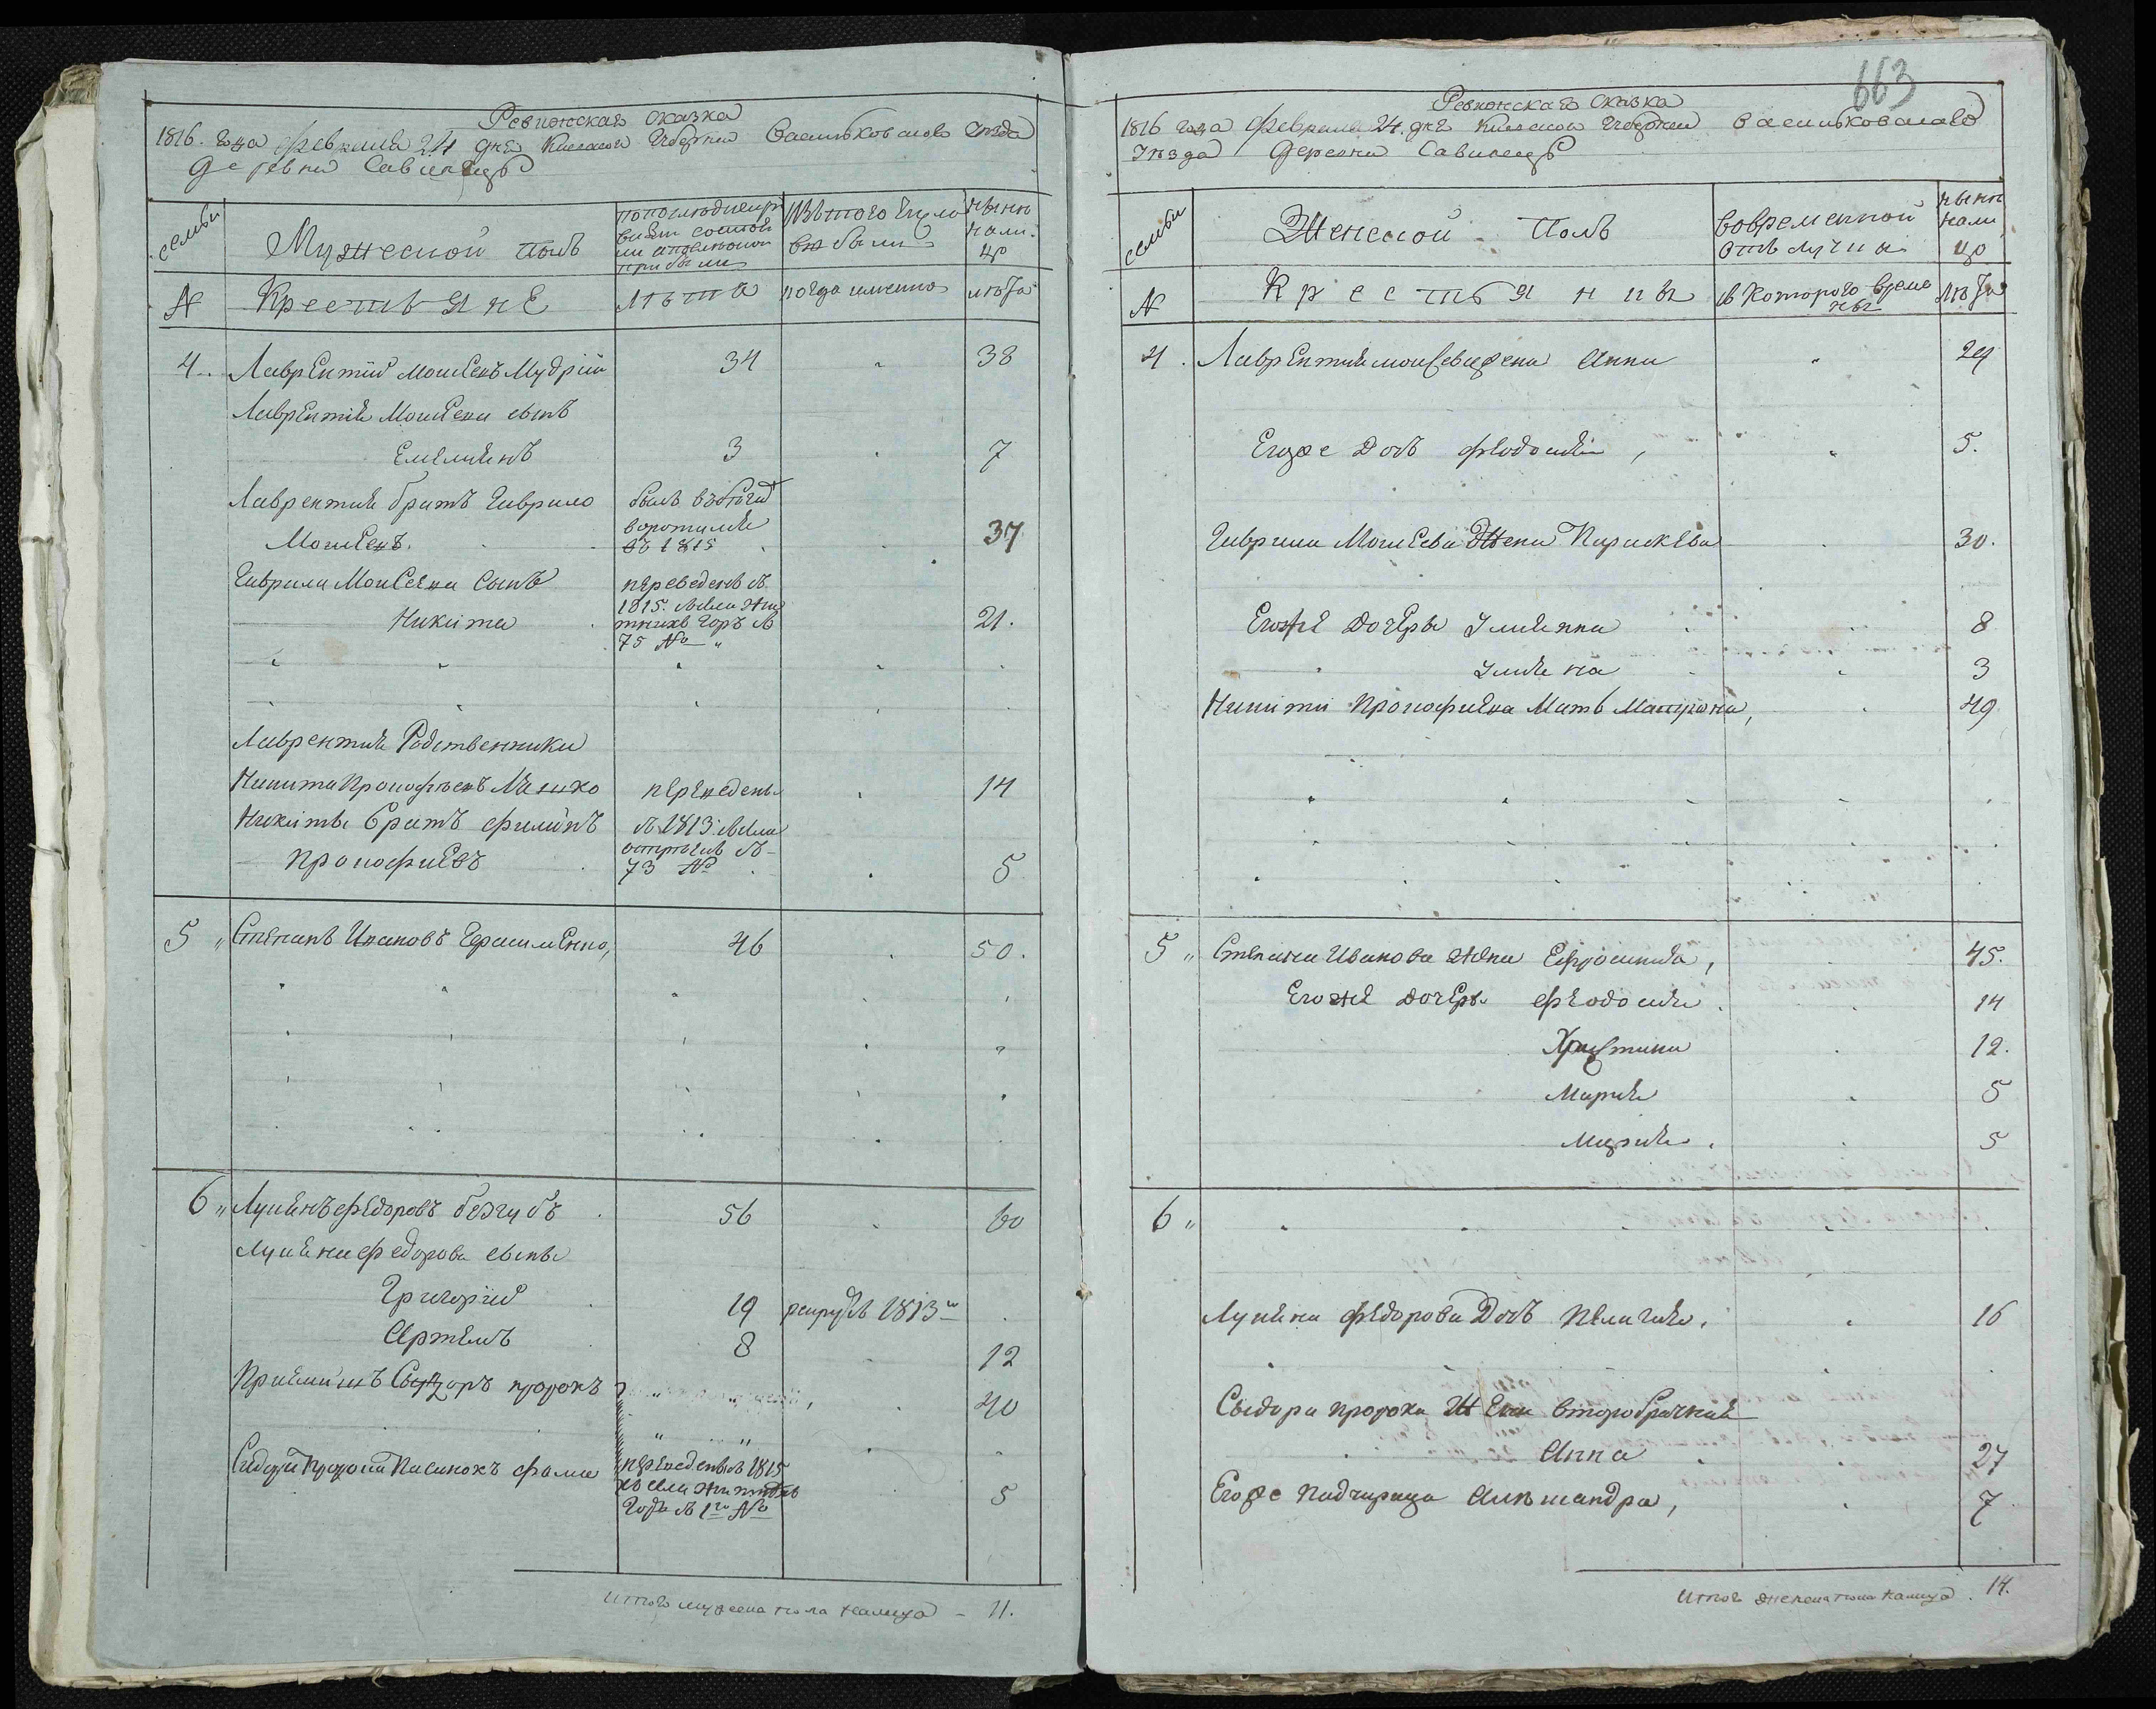 Ревижская сказка
1816. года февраля 24 дня Киевской Губернии Васильковского уезда
деревни Савинецъ
семьи
Мужеской полъ
по последней ре
визии состоя
ло и после оной
прибыло
Изъ того числа
выбыло
ныне
нали
цо
№
Крестьяне
лѣта
когда именно
лѣта
4. Лаврентій Моисеевъ Мудрій 34 38
Лаврентія Моисеева сынъ
Емелиянъ 3 7
Лаврентия братъ Гаврило былъ въ бѣгах
Моисеевъ. воротился въ 1815 37
Гаврила Моисеева Сынъ переведенъ въ
Никита 1815. 21.
75 №
Лаврентия Родственники
Никита Прокофьевъ переведены 14
Никиты братъ Филипъ въ 1813
Прокофиевъ 73 № 5
5 Степанъ Ивановъ Герасименко, 46 50.
6 Лукиянъ Федоровъ безгубъ 56 60
Лукияна Федорова сыны
Григорій 19 рекрут въ 1813
Артемъ 8 12
Приемишъ Сыдоръ пророкъ 40
Сидора пророка Пасинокъ Фома переведенъ въ 1815
5
въ 1го №
Итого мужеска пола налицо - 11.
663
Ревижская сказка
1816 года февраля 24. дня Киевской Губернии Васильковского
уезда деревни Савинецъ
семьи
Женской Полъ
Во временной
отлучке
ныне
нали
цо
№
Крестьянины
съ которого време
ны
лѣта
4. Лаврентия Моисева жена Анна 29
Егоже Дочь Феодосия, 5.
Гаврила Моисеева Жена Параскева 30.
Егоже дочери Улияна 8
Улияна 3
Никити Прокофиева Мать Матрона, 49
5 Степана Иванова жена Ефросиния, 45.
Егоже дочери Феодосия 14
Христина 12.
Мария 5
Мария. 5
6
Лукияна Федорова Дочь Пелагия, 16
Сыдора пророка Жена второбрачная
Анна 27
Егоже Падчирица Александра, 7
Итого женска пола налицо 14.